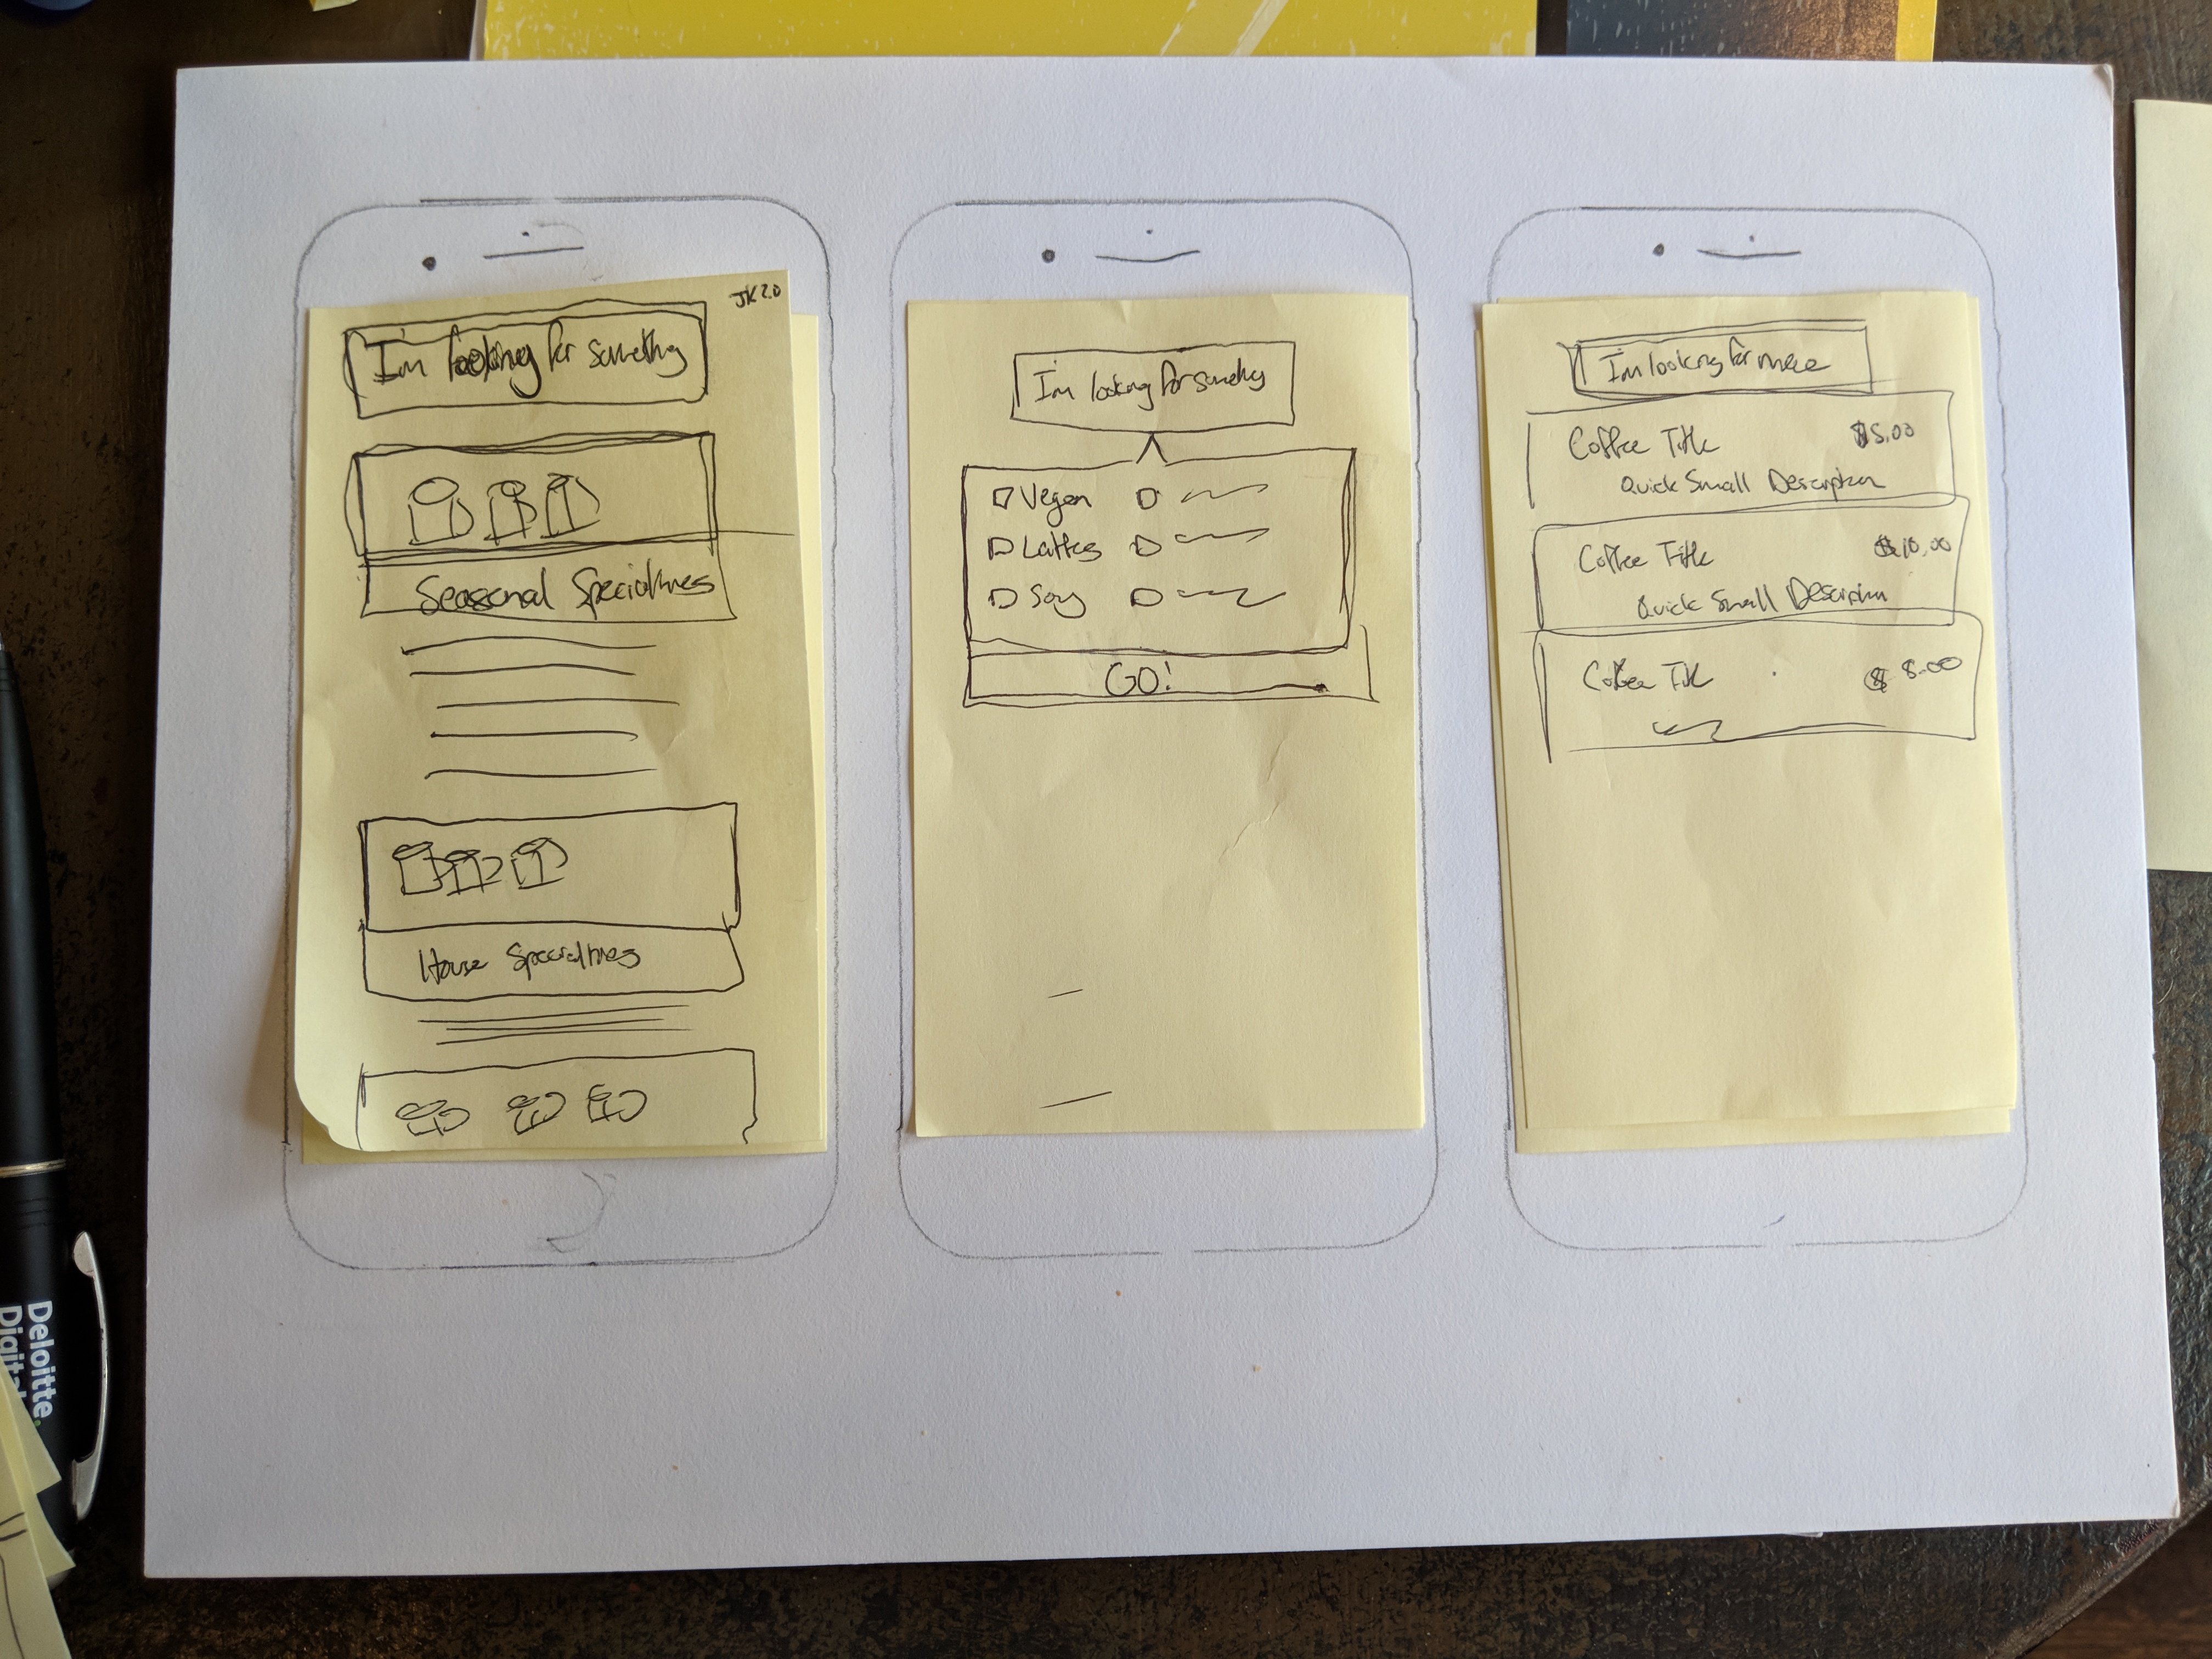 JK 2.0
I'm looking for something
Seasonal Specialties
House Specialties
I'm looking for something
Vegan
Lattes
Soy
GO!
I'm looking for more
Coffee Title $5.00
Quick Small Description
Coffee Title $10.00
Quick Small Description
Coffee Title $8.00
Deloitte.